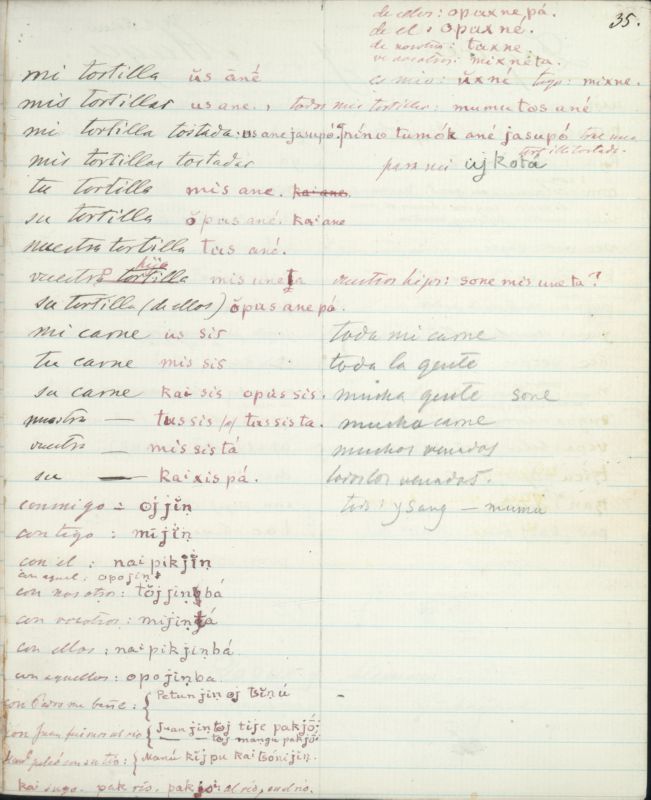 35.
de ellos: opaxne pá.
de el: opaxné.
de nosotros: taxne.
de vosotros: mixnéta.
es mio: ŭxné tuyo: mixne.
mi tortilla ŭs ané
mis tortillas us ane., todas mis tortillas: mumu tos ané
mi tortilla tostada: us ane jasupó. mino tumók ané jasupó trae una tortilla tostada.
mis tortillas tostadas para mi ujkotá
tu tortilla mis ane. kai ane.
su tortilla ŏpas ané. kai ane
nuestra tortilla tas ané.
vuestro tortilla hijo mis uneta vuestros hijos: sone mis une ta?
su tortilla (de ellos) ŏpas ane pá.
mi carne us sis toda mi carne
tu carne mis sis toda la gente
su carne kai sis opas sis. mucha gente sone
nuestra — tas sis tas sista. mucha carne
vuestra — mis sistá muchos venados
su — kaixis pá. todos los venados.
conmigo = ojjĭn todo: — mumu
contigo: mijĭn
con el: nai pikjĭn
con aquel: opojin
con nosotros: tŏjjinbá
con vosotros: mijintá
con ellos: nai pikjinbá.
con aquellos: opojinba.
con Pedro me bañé: Petun jin oj tsĭnú
con Juan fuimos al rio: Juan jin toj tije pakjó;
toj mangu pakjó;
con su tio: Manú kĭjpu kai tsónĕjin.
kai suyo. pak río. pakjo: al río, en el río.